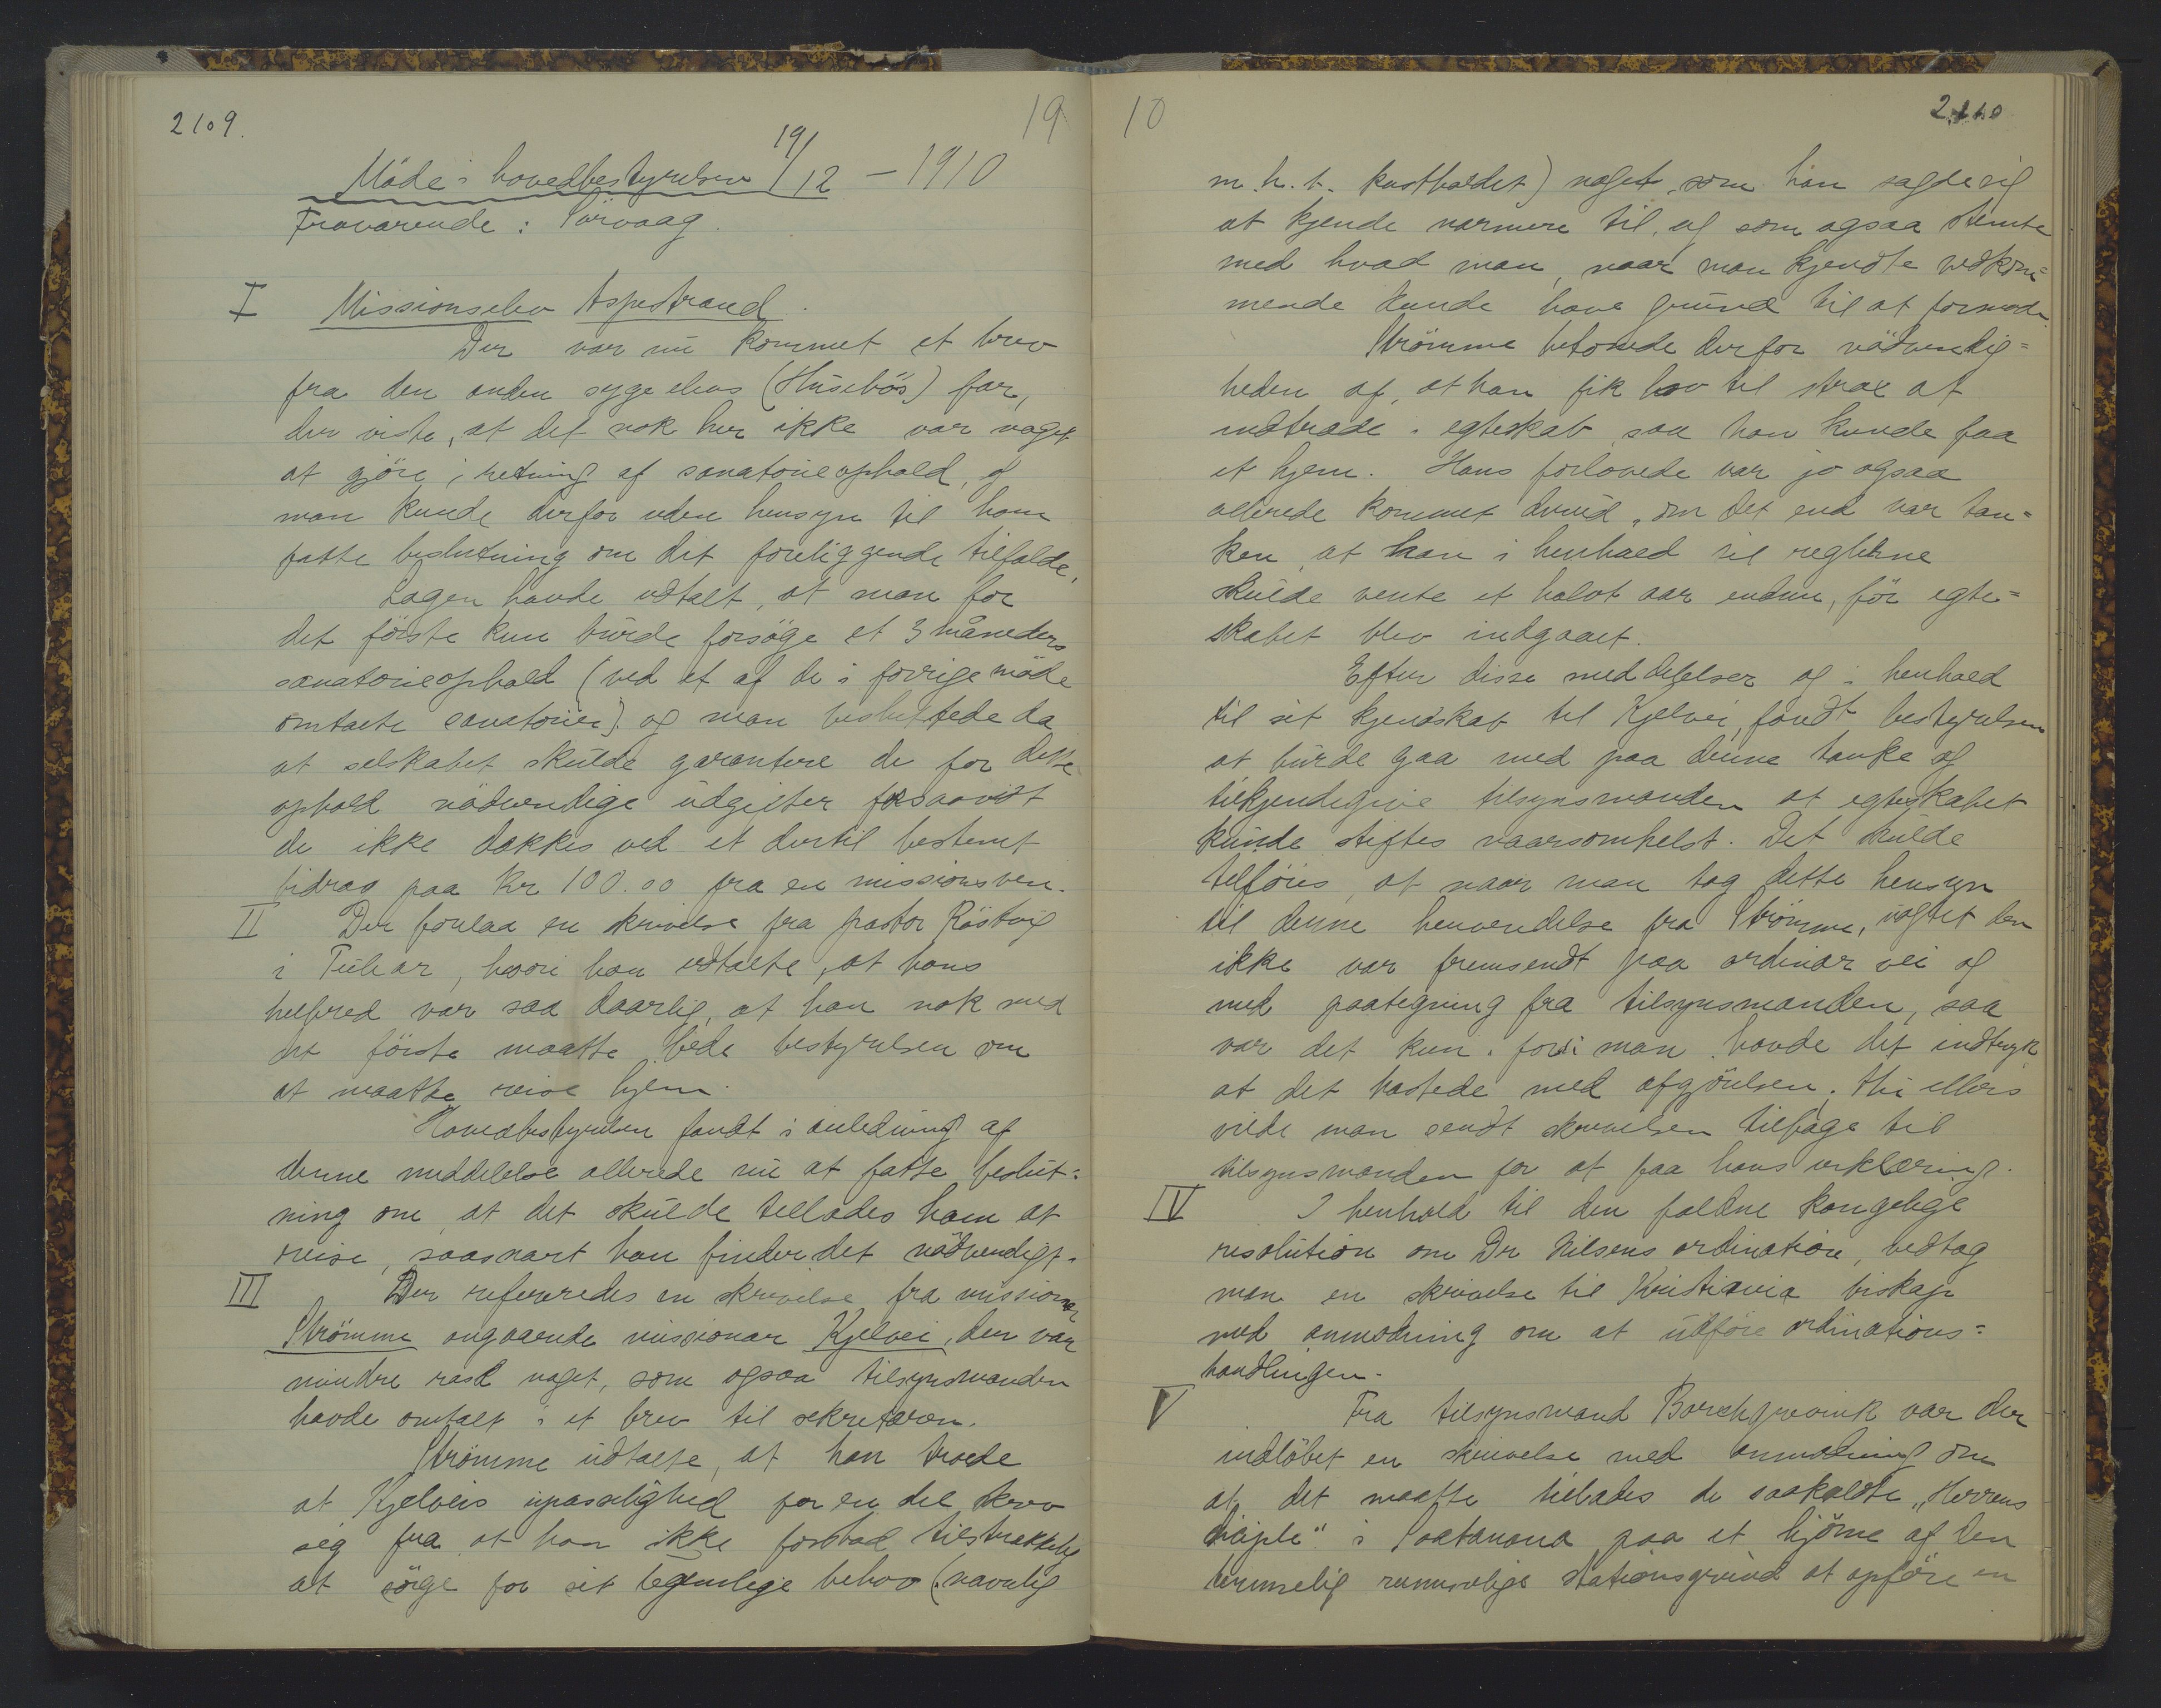 2109.
19
Möde i hovedbestyrelsen 19/12 – 1910
Fraværende: Sörvaag.
I Missionselev Aspestrand.
Der var nu kommet et brev
fra den anden syge elevs (Husebös) far,
der viste, at det nok her ikke var noget
at gjöre i retning af sanatorieophold, og
man kunde derfor uden hensyn til ham
fatte beslutning om det foreliggende tilfælde.
Lægen havde udtalt, at man for
det förste kun burde forsöge et 3 måneders
sanatorieophold (ved et af de i forrige möde
omtalte sanatorier) og man besluttede da
at selskabet skulde garantere de for dette
ophold nödvendige udgifter forsaavidt
de ikke dækkes ved et dertil bestemt
bidrag paa Kr 100.00 fra en missionsven.
II Der forelaa en skrivelse fra pastor Röstvig
i Tulear, hvori han udtalte, at hans
helbred var saa daarlig, at han nok med
det förste maatte bede bestyrelsen om
at maatte reise hjem.
Hovedbestyrelsen fandt i anledning af
denne meddelelse allerede nu at fatte beslut=
ning om at det skulde tillades ham at
reise, saasnart han finder det nödvendigt.
III Der refereredes en skrivelse fra missionær
Strömme angaaende missionær Kjelvei, der var
mindre rask noget, som ogsaa tilsynsmanden
havde omtalt i et brev til sekretæren.
Strömme udtalte, at han troede
at Kjelveis upasselighed for en del skrev
sig fra at han ikke forstod tilstrækkelig
at sörge for sit legemlige behov (navnlig
10
2110
m.h.t. kostholdet) noget som han sagde sig
at kjende nærmere til, og som ogsaa stemte
med hvad man, naar man kjendte vedkom=
mende kunde have grund til at formode.
Strömme betonede derfor nödvendig=
heden af, at han fik lov til strax at
indtræde i egteskab saa han kunde faa
et hjem. Hans forlovede var jo ogsaa
allerede kommet derud, om det end var tan=
ken, at han i henhold til reglerne
skulde vente et halvt aar endnu, för egte=
skabet blev indgaaet.
Efter disse meddelelser og i henhold
til sit kjendskab til Kjelvei, fandt bestyrelsen
at burde gaa med paa denne tanke og
tilkjendegive tilsynsmanden at egteskabet
kunde stiftes naarsomhelst. Det skulde
tilföies, at naar man tog dette hensyn
til denne henvendelse fra Strömme, uagtet den
ikke var fremsendt paa ordinær vei og
med paategning fra tilsynsmanden, saa
var det kun fordi man havde det indtryk
at det hastede med afgjörelsen. Thi ellers
vilde man sendt skrivelsen tilbage til
tilsynsmanden for at faa hans erklæring.
IV I henhold til den faldne kongelige
resolution om Dr Nilsens ordination, vedtog
man en skrivelse til Kristiania biskop
med anmodning om at udföre ordinations=
handlingen.
V Fra tilsynsmand Borchgrevink var der
indlöbet en skrivelse med anmodning om
at det maatte tillades de saakaldte „Herrens
disiple" i Soatanana paa et hjörne af den
temmelig rummelige stationsgrund at opföre en